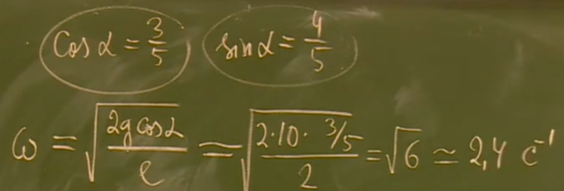 cos α = 3/5 sin α = 4/5
ω = √(2g cos α / ℓ) = √(2·10·3/5 / 2) = √6 ≃ 2,4 c⁻¹